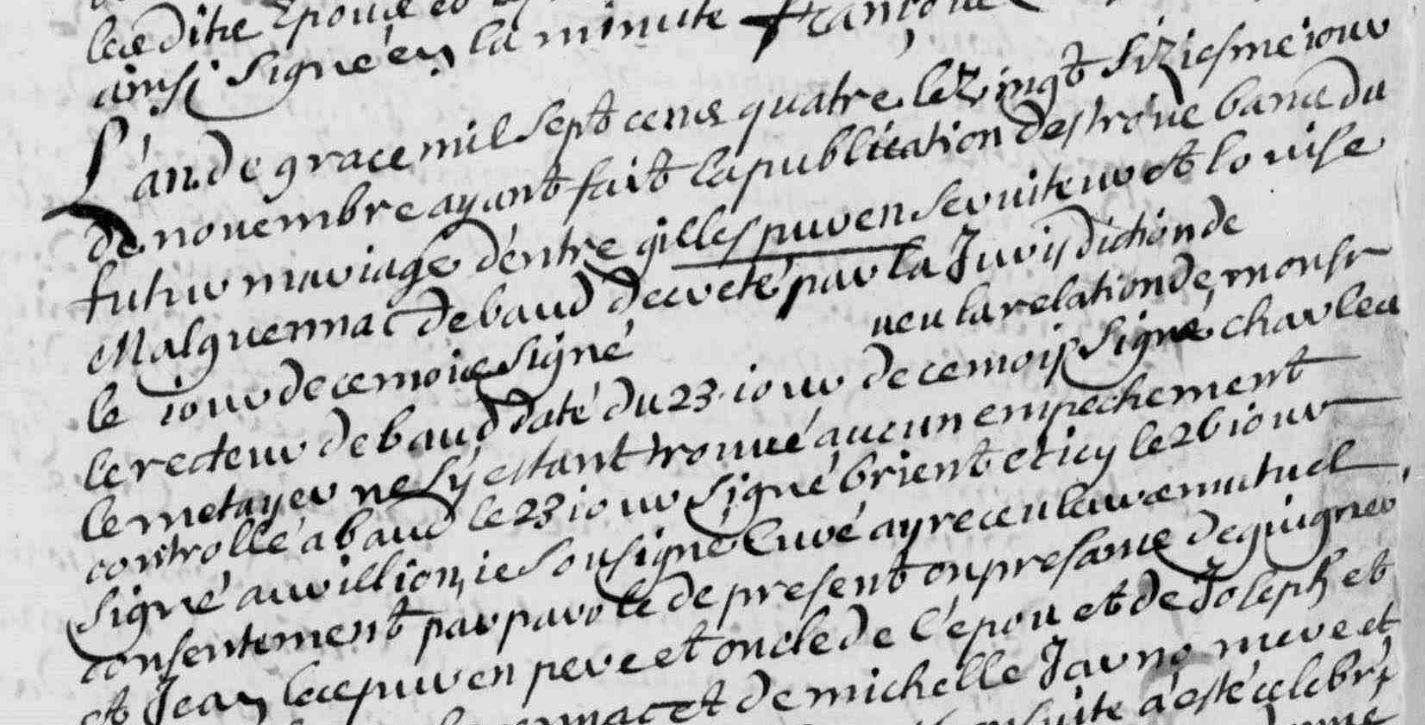 ladite Epouse
ainsi signé en la minute françoise
L'an de grace mil sept cens quatre le vingt siziesme iour
de novembre ayant fait la publication des trois bans du
futur mariage d'entre gilles puren serviteur et louise
Malguennac de baud decreté par la Jurisdiction de
le iour de ce mois signé veu la relation de monsr
le recteur de baud daté du 23 iour de ce mois signé charles
le metayer ne s'y estant trouvé aucun empechement
controllé a baud le 23 iour signé brient et icy le 26 iour
signé auvillion, ie sousigné curé ay receu leurs mutuel
consentement par parole de present en presance de guigner
et Jean les puren pere et oncle de l'epou et de Joseph et
malguennac et de michelle Jarno mere et
ensuite a esté celebré